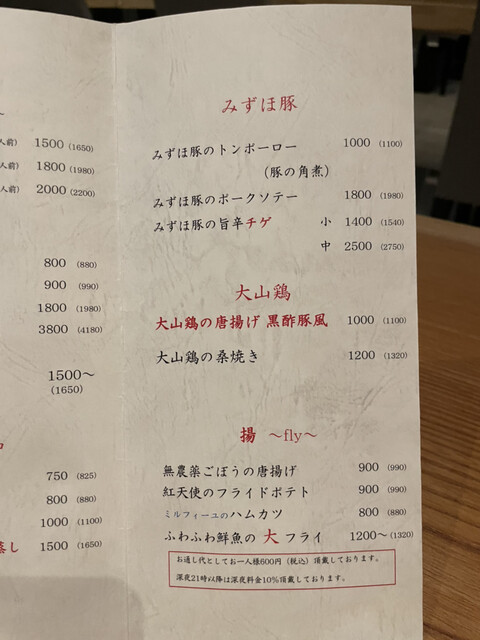 人前) 1500 (1650)
人前) 1800 (1980)
人前) 2000 (2200)
800 (880)
900 (990)
1800 (1980)
3800 (4180)
1500～
(1650)
750 (825)
800 (880)
1000 (1100)
蒸し 1500 (1650)
みずほ豚
みずほ豚のトンポーロー 1000 (1100)
(豚の角煮)
みずほ豚のポークソテー 1800 (1980)
みずほ豚の旨辛チゲ 小 1400 (1540)
中 2500 (2750)
大山鶏
大山鶏の唐揚げ 黒酢豚風 1000 (1100)
大山鶏の桑焼き 1200 (1320)
揚 ～fly～
無農薬ごぼうの唐揚げ 900 (990)
紅天使のフライドポテト 900 (990)
ミルフィーユのハムカツ 800 (880)
ふわふわ鮮魚の 大 フライ 1200～ (1320)
お通し代としてお一人様600円（税込）頂戴しております。
深夜21時以降は深夜料金10％頂戴しております。